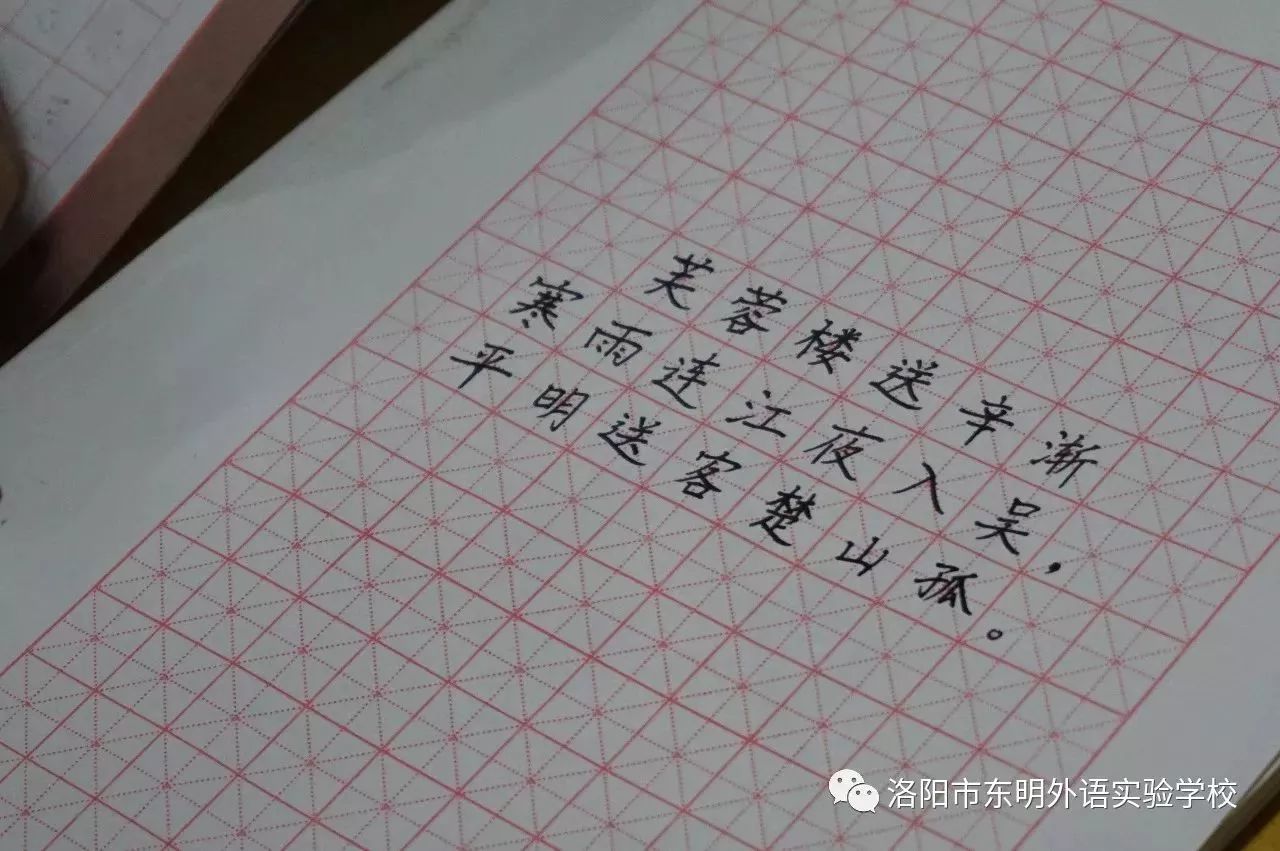 芙蓉楼送辛渐
寒雨连江夜入吴，
平明送客楚山孤。
洛阳市东明外语实验学校